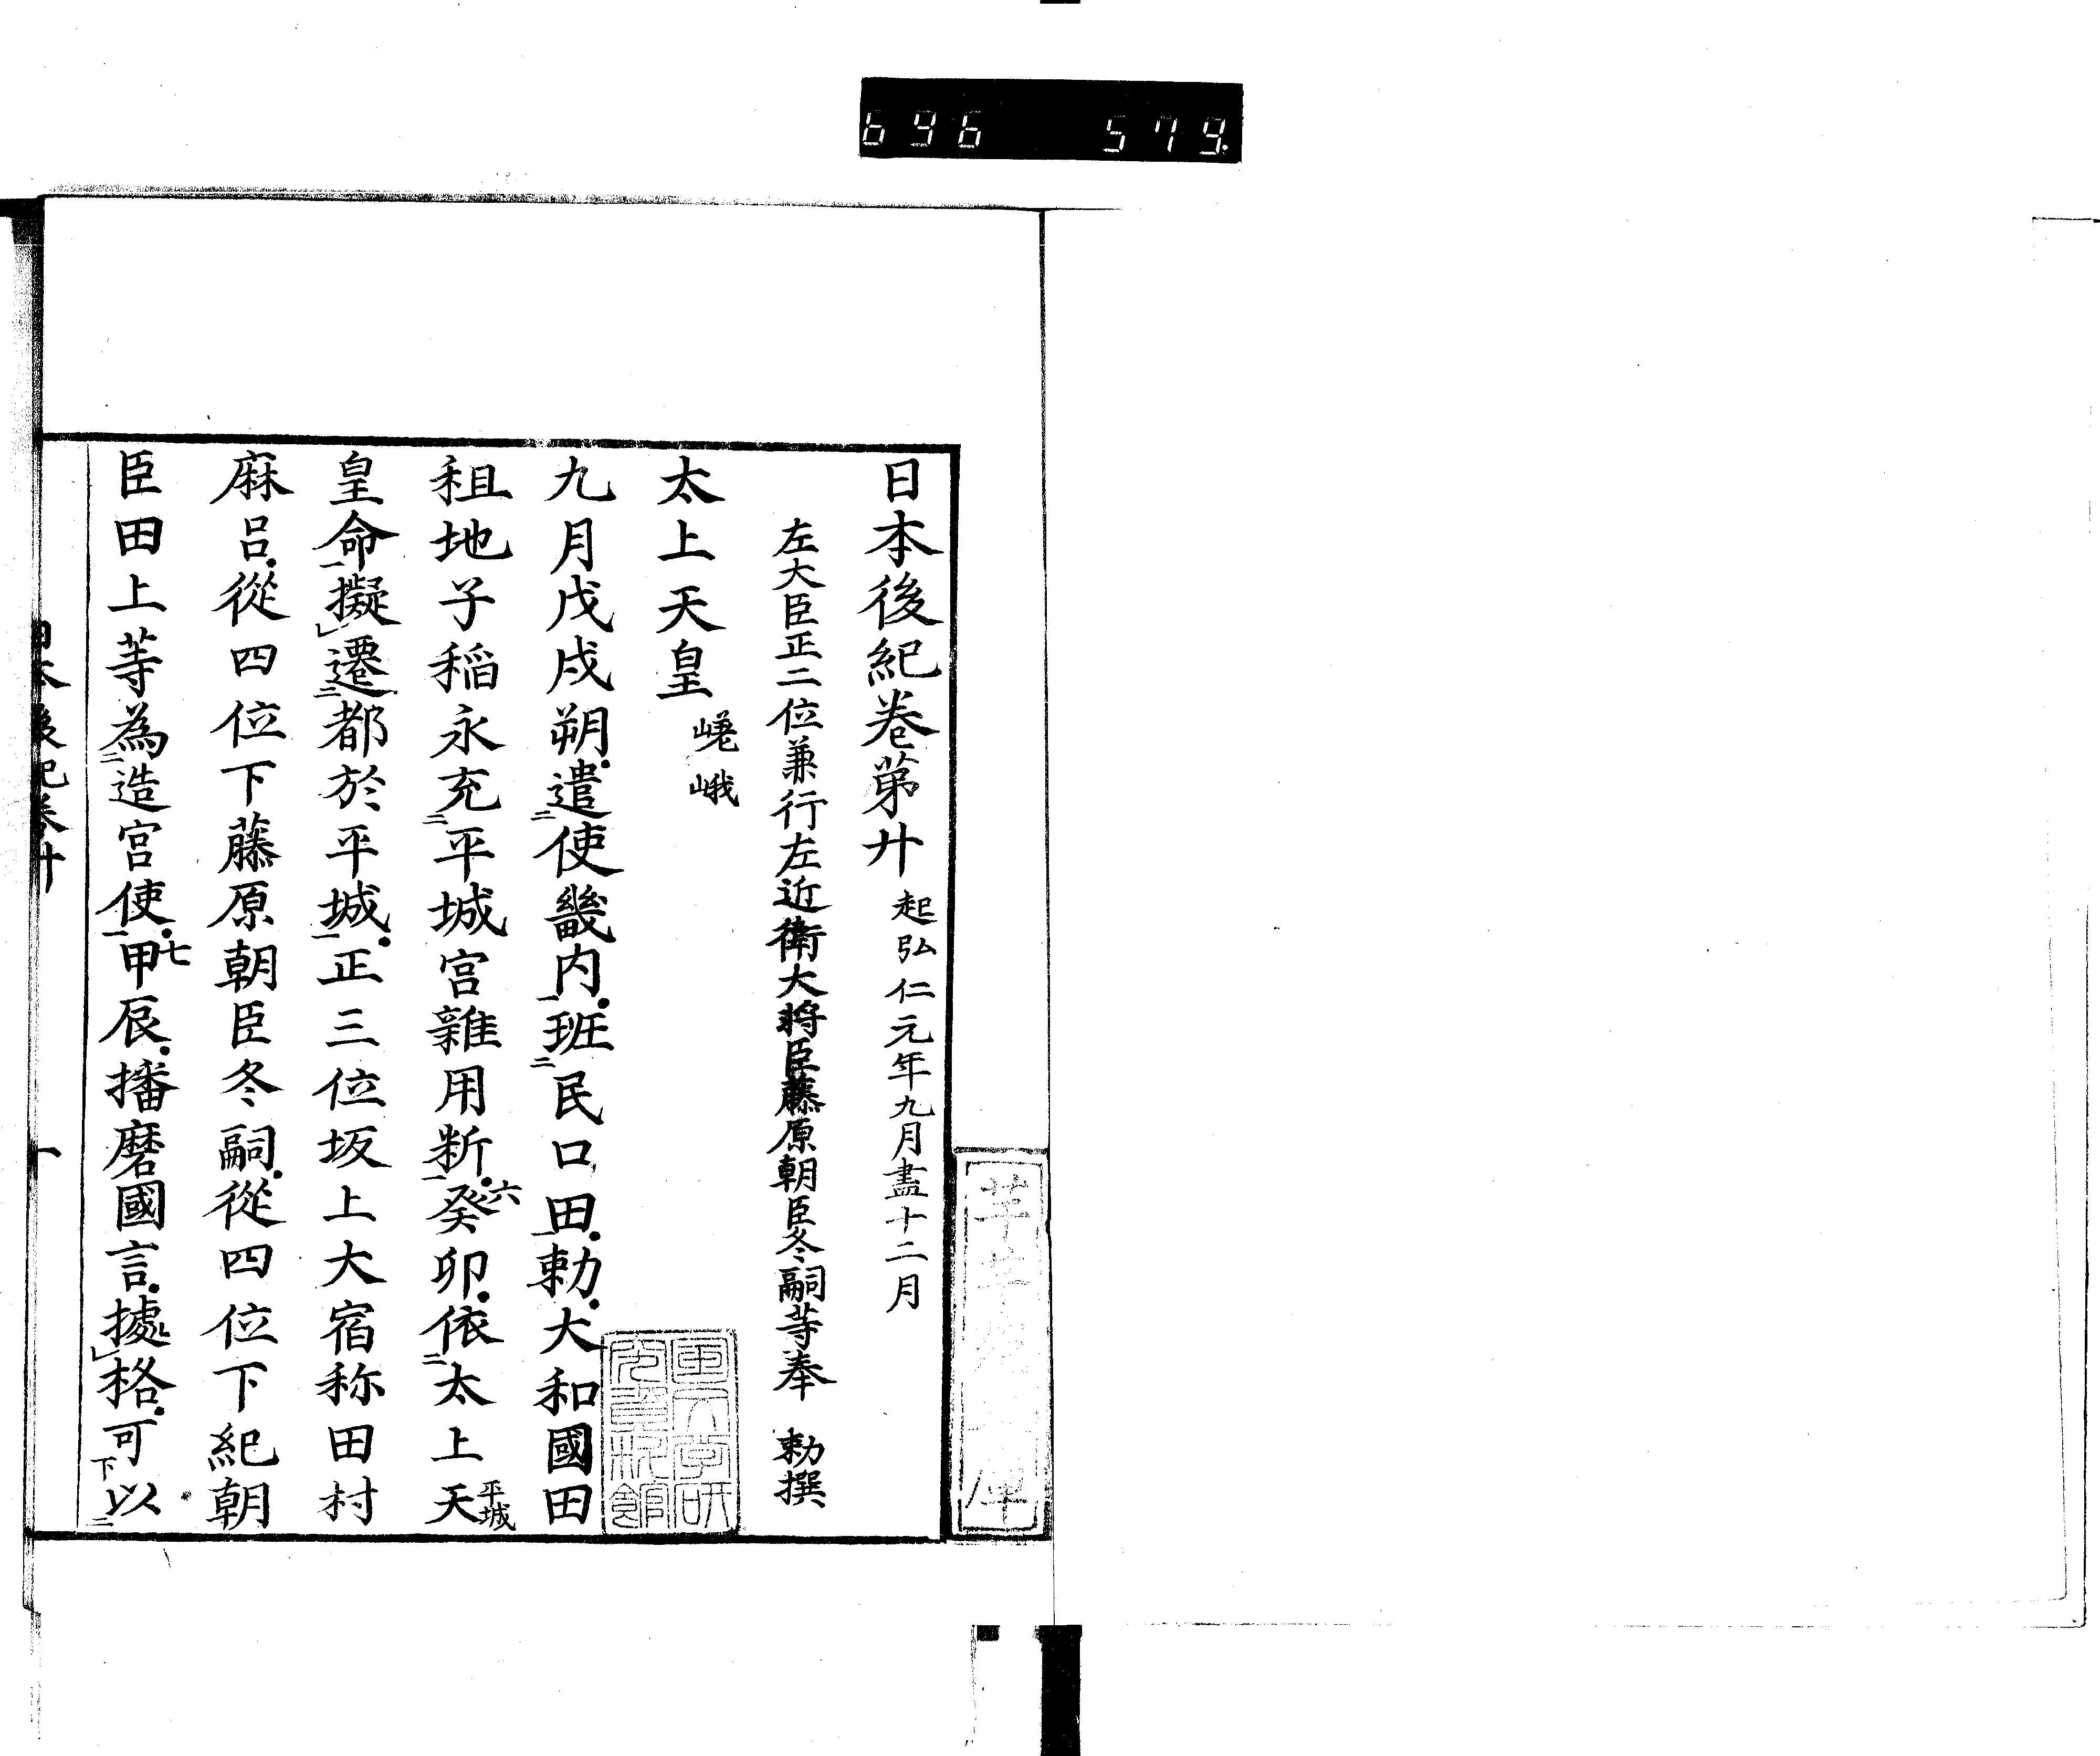 696 579.
日本後紀卷第廾 起弘仁元年九月盡十二月
左大臣正二位兼行左近衛大將臣藤原朝臣冬嗣等奉 勅撰
太上天皇 嵯峨
九月戊戌朔遣二使畿内一班二民口田一勅大和國田
租地子稲永充二平城宮雜用断一六癸卯依二太上天平城
皇命一擬レ遷二都於平城一正三位坂上大宿祢田村
麻呂從四位下藤原朝臣冬嗣從四位下紀朝
臣田上等為二造宮使一七甲辰播磨國言據レ格可下以二
日本後紀卷廾 一